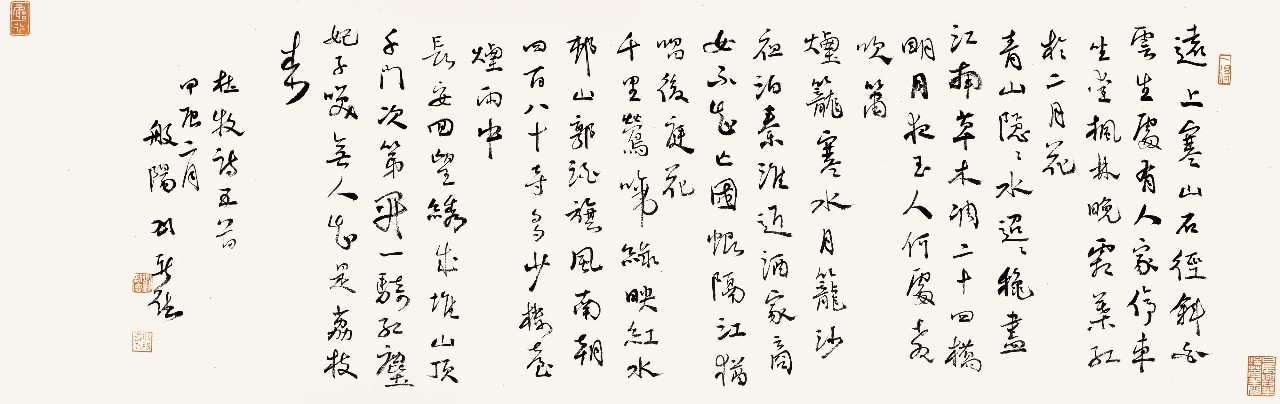 遠上寒山石徑斜白
雲生處有人家停車
坐愛楓林晚霜葉紅
於二月花
青山隱〻水迢〻穐盡
江南草木凋二十四橋
明月夜玉人何處教
吹簫
煙籠寒水月籠沙
夜泊秦淮近酒家商
女不知亡國恨隔江猶
唱後庭花
千里鶯啼綠映紅水
邨山郭酒旗風南朝
四百八十寺多少樓臺
煙雨中
長安回望繡成堆山頂
千門次第開一騎紅塵
妃子笑無人知是荔枝
來
杜牧詩五首
甲辰二月
般陽